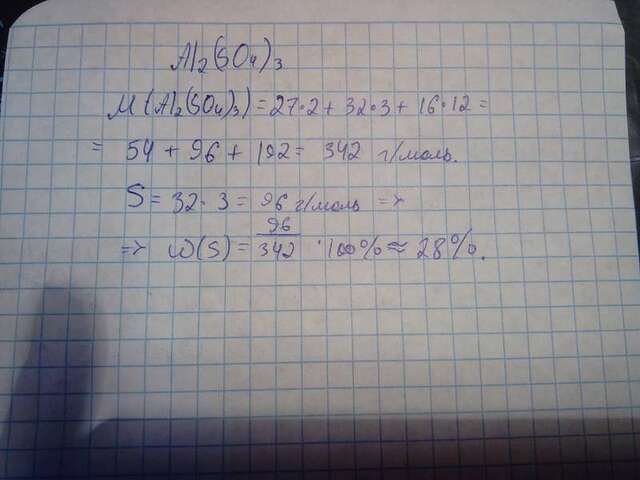 Al₂(SO₄)₃
M(Al₂(SO₄)₃) = 27·2 + 32·3 + 16·12 =
= 54 + 96 + 192 = 342 г/моль.
S = 32·3 = 96 г/моль =>
=> ω(S) = 96/342 · 100% ≈ 28%.